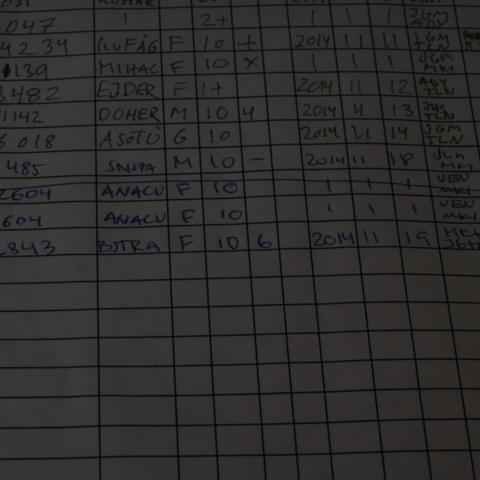 6047 2+ 1 1 1 JGM
4234 F 10 + 2014 11 11 JGM TLN
139 MIHAC F 10 x 1 1 1 JGM MKI
3482 EJDER F 1+ 2014 11 12 ADY TLN
1142 DOHER M 10 4 2014 4 13 TLN
6018 ASOTU G 10 2014 11 14 JGM TLN
485 SNSPA M 10 - 2014 11 18 JGM MKI
2604 ANACU F 10 1 1 1 VEN MKI
604 ANACU F 10 1 1 1 VEN MKI
2843 BSTRA F 10 6 2014 11 19 MKI JGM